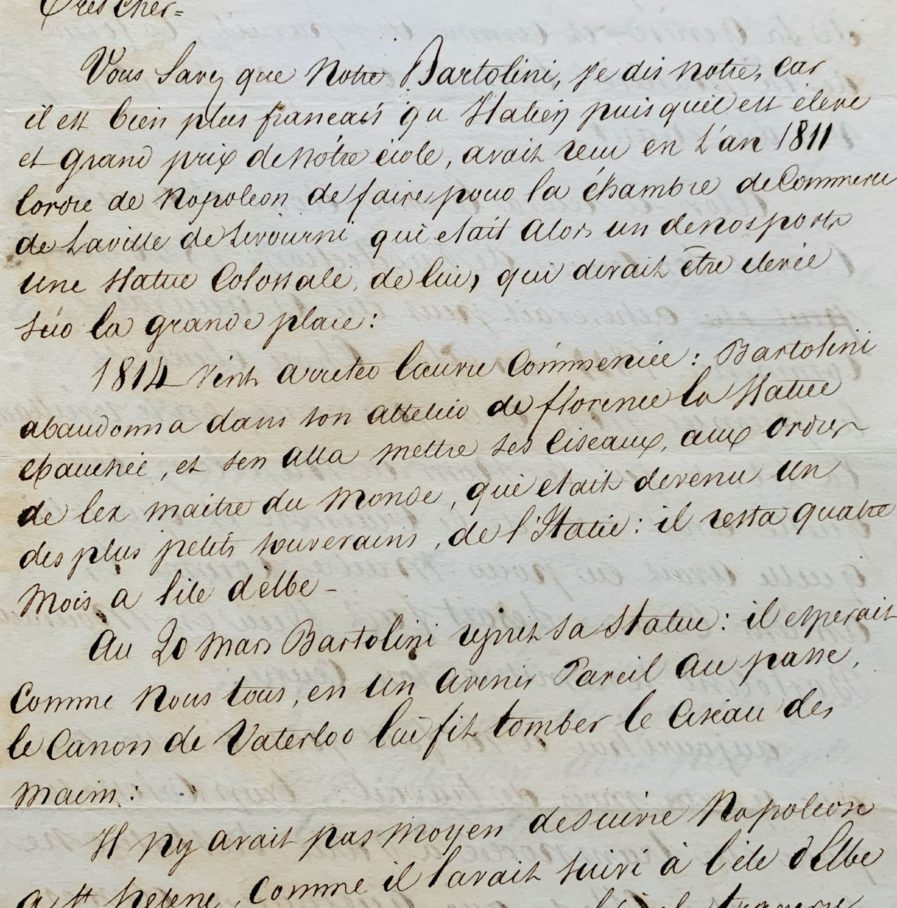 Très cher=
Vous Savez que Notre Bartolini, je dis notre, car
il est bien plus francais qu Italien puisquil est élève
et grand prix de Notre école, avait recu en l'an 1811
lordre de Napoléon de faire pour la chambre de Commerce
de Laville de Livourne qui etait alors un denosports
une Statue Colossale, de lui, qui devait être élevée
sur la grande place:
1814 vint arreter lœuvre Commencée: Bartolini
abandonna dans son attelier de florence la Statue
ebauchée, et sen alla mettre ses Ciseaux, aux ordres
de lex maitre du Monde, qui etait devenu un
des plus petits souverains, de l'Italie: il resta quatre
Mois, a l'ile d'elbe-
Au 20 Mars Bartolini reprit sa Statue: il esperait
Comme Nous tous, en un avenir Pareil au passe,
le Canon de Vaterloo lui fit tomber le Ciseau des
mains:
Il ny avait pas moyen desuivre Napoleon
a Ste Helene, Comme il lavait suivi à l'ile d'Elbe